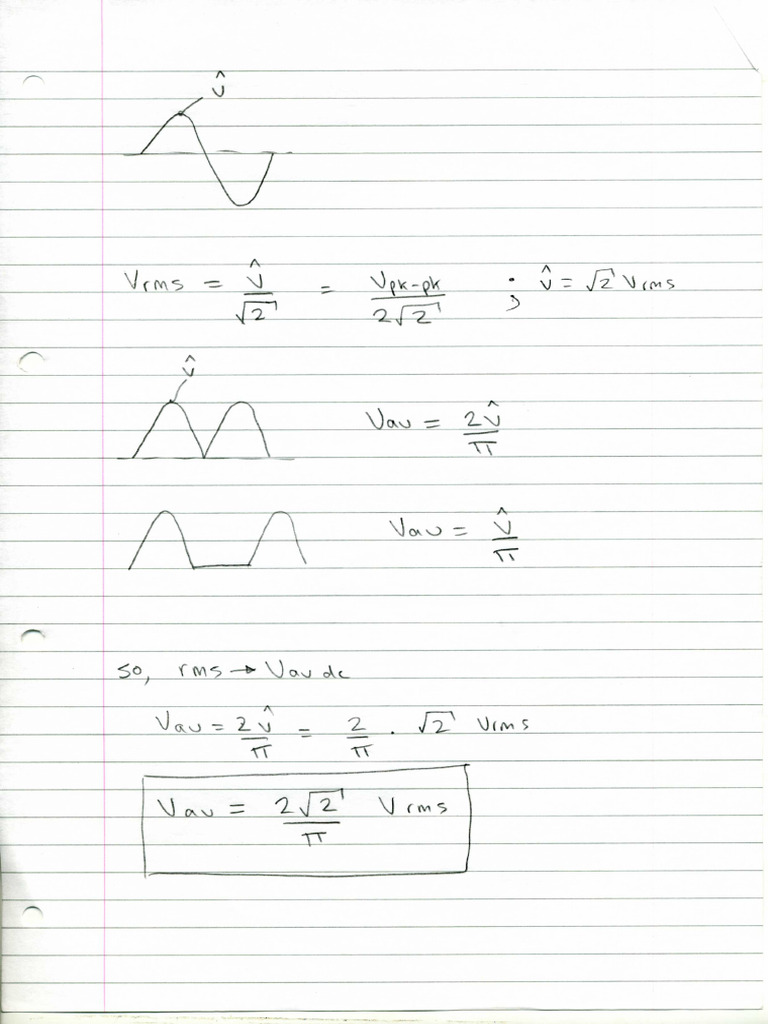 v̂
Vrms = v̂/√2 = Vpk-pk/2√2 ; v̂ = √2 Vrms
v̂
Vav = 2v̂/π
Vav = v̂/π
so, rms → Vav dc
Vav = 2v̂/π = 2/π . √2 Vrms
Vav = 2√2/π Vrms